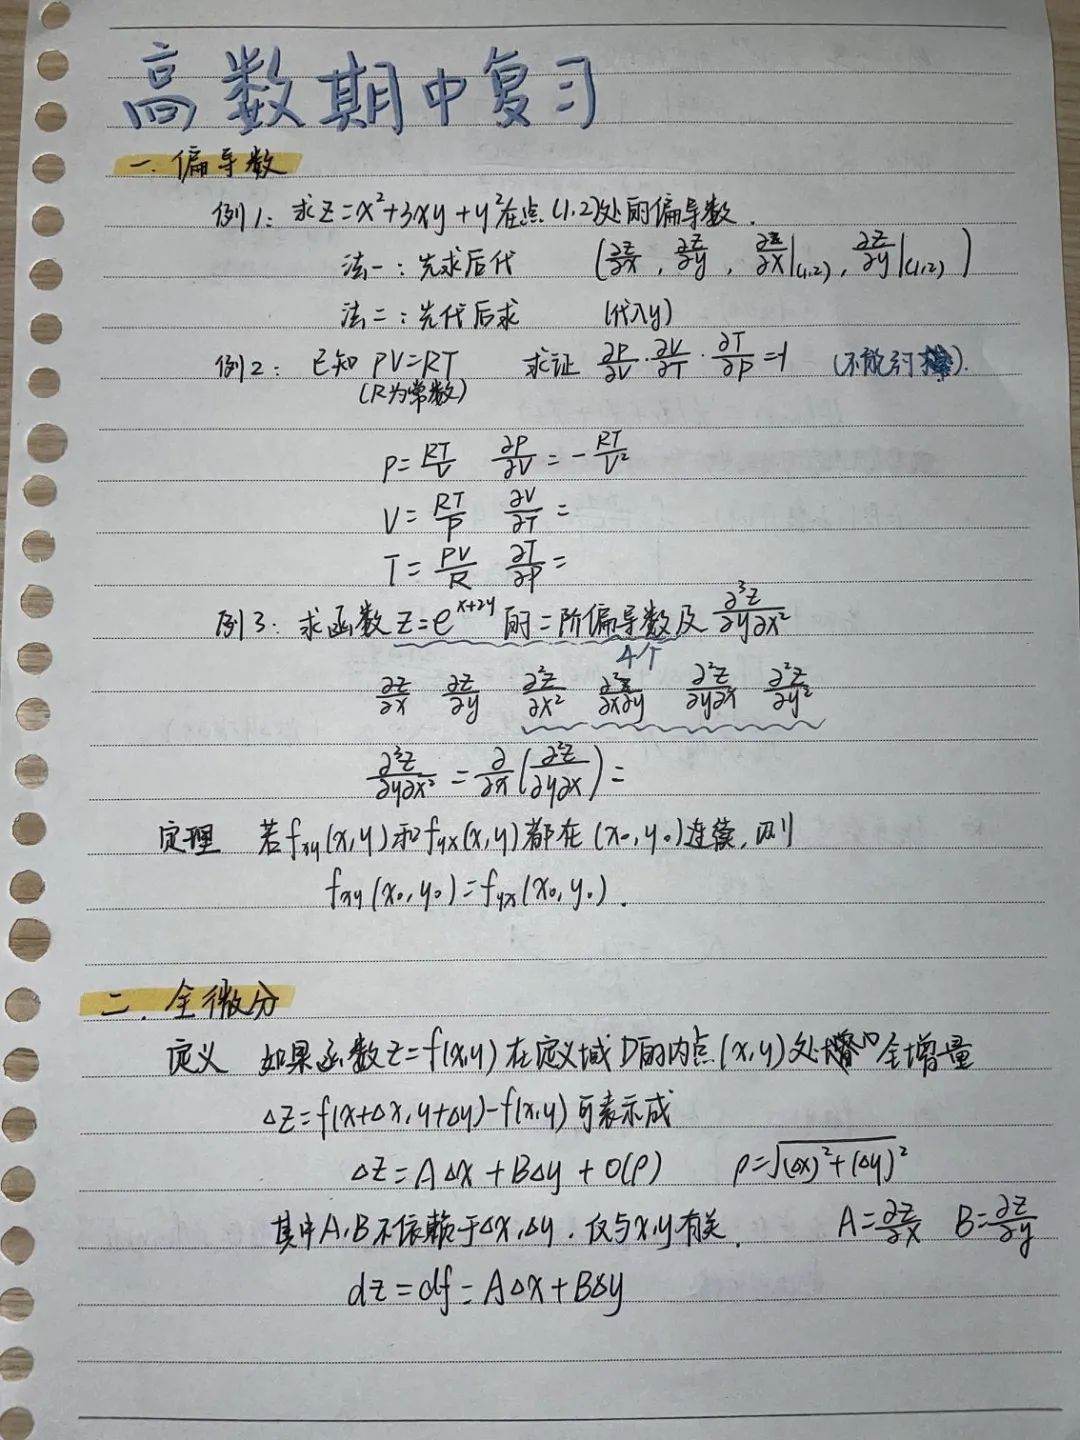 高数期中复习
一. 偏导数
例1: 求z=x²+3xy+y²在点(1,2)处的偏导数.
法一: 先求后代 (∂z/∂x, ∂z/∂y, ∂z/∂x|(1,2), ∂z/∂y|(1,2))
法二: 先代后求 (代入y)
例2: 已知 PV=RT 求证 ∂P/∂V·∂V/∂T·∂T/∂P=-1 (不能约掉).
(R为常数)
P=RT/V ∂P/∂V=-RT/V²
V=RT/P ∂V/∂T=
T=PV/R ∂T/∂P=
例3: 求函数z=e^(x+2y)的二阶偏导数及∂³z/∂y∂x²
4个
∂z/∂x ∂z/∂y ∂²z/∂x² ∂²z/∂x∂y ∂²z/∂y∂x ∂²z/∂y²
∂³z/∂y∂x²=∂/∂x(∂²z/∂y∂x)=
定理 若fxy(x,y)和fyx(x,y)都在(x₀,y₀)连续,则
fxy(x₀,y₀)=fyx(x₀,y₀).
二. 全微分
定义 如果函数z=f(x,y)在定义域D的内点(x,y)处 全增量
Δz=f(x+Δx,y+Δy)-f(x,y)可表示成
Δz=AΔx+BΔy+o(ρ) ρ=√((Δx)²+(Δy)²)
其中A,B不依赖于Δx,Δy,仅与x,y有关. A=∂z/∂x B=∂z/∂y
dz=df=AΔx+BΔy